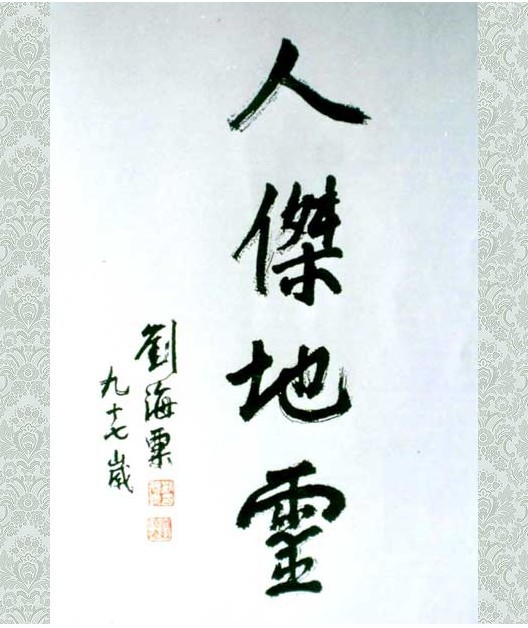 人傑地靈
劉海粟
九十七歲